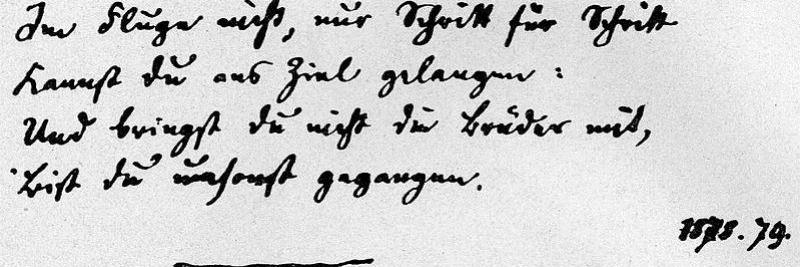 Im Fluge nicht, nur Schritt für Schritt
Kannst du ans Ziel gelangen:
Und bringst du nicht die Brüder mit,
Bist du umsonst gegangen.
1878.79.